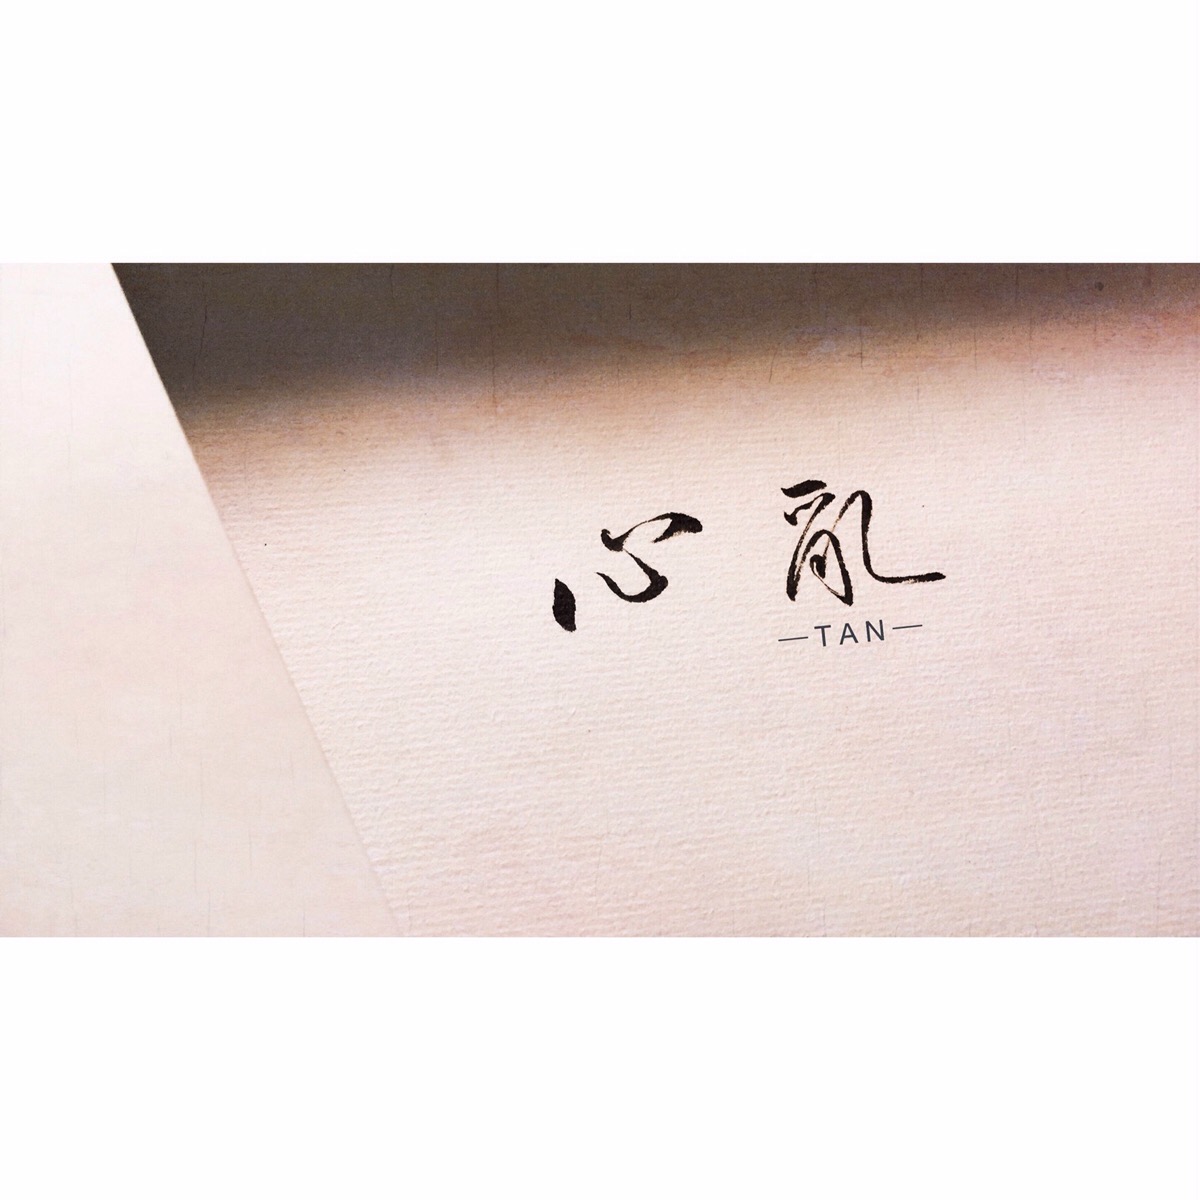 心亂
—TAN—